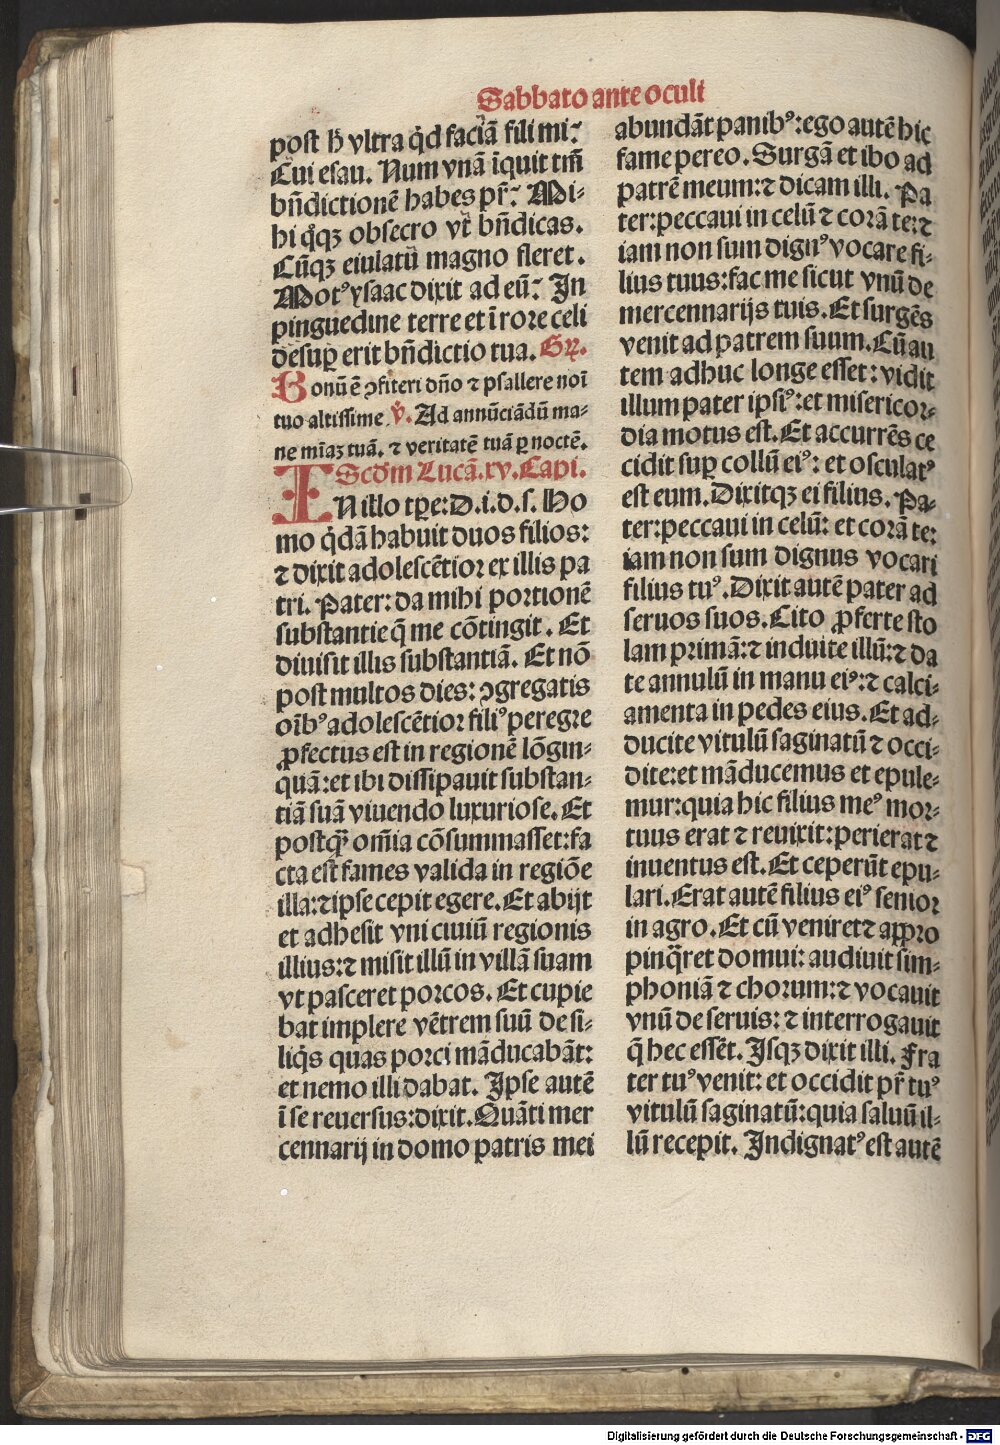 Sabbato ante oculi
post h̄ vltra qd̓ faciā fili mi:
Cui esau. Num vnā īquit tm̄
bn̄dictionē habes pr̄: Mi-
hi q̊qꝫ obsecro vt bn̄dicas.
Cūqꝫ eiulatū magno fleret.
Motꝰ ysaac dixit ad eū: In
pinguedine terre et ī rore celi
desuꝑ erit bn̄dictio tua. Gꝶ.
Bonū ē ꝯfiteri dn̄o ⁊ psallere noī
tuo altissime. ℣. Ad annūciādū ma-
ne mīaꝫ tuā. ⁊ veritatē tuā ꝑ noctē.
Scd̓m Lucā. xv. Capi.
IN illo tꝑe: D. i. d. s. Ho
mo qd̓ā habuit duos filios:
⁊ dixit adolescētior ex illis pa
tri. Pater: da mihi portionē
substantie q̄ me cōtingit. Et
diuisit illis substantiā. Et nō
post multos dies: ꝯgregatis
oībꝰ adolescētior filiꝰ peregre
ꝓfectus est in regionē lōgin-
quā: et ibi dissipauit substan-
tiā suā viuendo luxuriose. Et
postqꝫ̄ om̄ia cōsummasset: fa
cta est fames valida in regiōe
illa: ⁊ ipse cepit egere. Et abijt
et adhesit vni ciuiū regionis
illius: ⁊ misit illū in villā suam
vt pasceret porcos. Et cupie
bat implere vētrem suū de si-
liq̄s quas porci māducabāt:
et nemo illi dabat. Ipse autē
ī se reuersus: dixit. Quāti mer
cennarij in domo patris mei
abundāt panibꝰ: ego autē hic
fame pereo. Surgā et ibo ad
patrē meum: ⁊ dicam illi. Pa
ter: peccaui in celū ⁊ corā te: ⁊
iam non sum dignꝰ vocare fi-
lius tuus: fac me sicut vnū de
mercennarijs tuis. Et surgēs
venit ad patrem suum. Cū au
tem adhuc longe esset: vidit
illum pater ipsiꝰ: et misericor-
dia motus est. Et accurrēs ce
cidit suꝑ collū eiꝰ: et osculatꝰ
est eum. Dixitqꝫ ei filius. Pa-
ter: peccaui in celū: et corā te:
iam non sum dignus vocari
filius tuꝰ. Dixit autē pater ad
seruos suos. Cito ꝓferte sto
lam primā: ⁊ induite illū: ⁊ da
te annulū in manu eiꝰ: ⁊ calci-
amenta in pedes eius. Et ad-
ducite vitulū saginatū ⁊ occi-
dite: et māducemus et epule-
mur: quia hic filius meꝰ mor-
tuus erat ⁊ reuixit: perierat ⁊
inuentus est. Et ceperūt epu-
lari. Erat autē filius eiꝰ senior
in agro. Et cū veniret ⁊ aꝓpro
pinq̄ret domui: audiuit sim-
phoniā ⁊ chorum: ⁊ vocauit
vnū de seruis: ⁊ interrogauit
q̄ hec essēt. Isqꝫ dixit illi. Fra
ter tuꝰ venit: et occidit pr̄ tuꝰ
vitulū saginatū: quia saluū il-
lū recepit. Indignatꝰ est autē
Digitalisierung gefördert durch die Deutsche Forschungsgemeinschaft - DFG